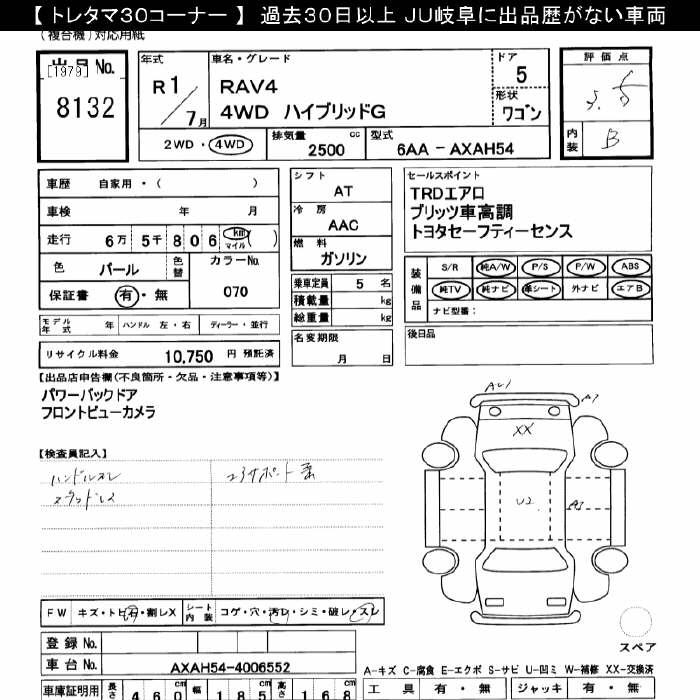 【 トレタマ30コーナー 】 過去30日以上 JU岐阜に出品歴がない車両
(複合機)対応用紙
出品 No.
[1979]
8132
年式
R 1 / 7 月
車名・グレード
RAV4
4WD ハイブリッドG
ドア
5
形状
ワゴン
2WD ・ 4WD
排気量 cc
2500
型式
6AA - AXAH54
評価点
内装 B
車歴 自家用・( )
車検 年 月
走行 6万 5千 8 0 6 km マイル ( )
色 パール
色替
カラーNo.
070
保証書 有・無
モデル年式 年 ハンドル 左・右 ディーラー・並行
リサイクル料金 10,750 円 預託済
シフト
AT
冷房
AAC
燃料
ガソリン
乗車定員 5 名
積載量 kg
総重量 kg
名変期限
月 日
セールスポイント
TRDエアロ
ブリッツ車高調
トヨタセーフティーセンス
装備品
S/R 純A/W P/S P/W ABS
純TV 純ナビ 革シート 外ナビ エアB
ナビ型番:
後日品
【出品店申告欄(不良箇所・欠品・注意事項等)】
パワーバックドア
フロントビューカメラ
【検査員記入】
ハンドルスレ
A1
XX
U2
FW キズ・トビ石・割レX
シート内装 コゲ・穴・汚レ・シミ・破レ・スレ
登録 No.
車台 No. AXAH54-4006552
車庫証明用 長さ 460 cm 幅 185 cm 高さ 168 cm
スペア
A-キズ C-腐食 E-エクボ S-サビ U-凹ミ W-補修 XX-交換済
工具 有・無 ジャッキ 有・無